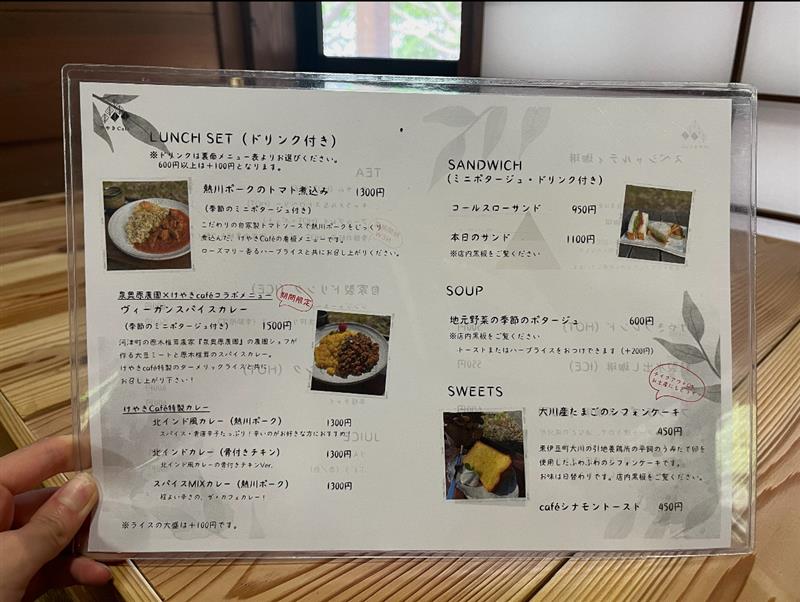 けやきCafé
LUNCH SET (ドリンク付き)
※ドリンクは裏面メニュー表よりお選びください。
600円以上は+100円となります。
熱川ポークのトマト煮込み 1300円
(季節のミニポタージュ付き)
こだわりの自家製トマトソースで熱川ポークをじっくり
煮込んだ、けやきCaféの看板メニューです。
ローズマリー香るハーブライスと共にお召し上がりください。
期間限定
ヴィーガンスパイスカレー
(季節のミニポタージュ付き) 1500円
河津町の原木椎茸農家
作る大豆ミートと原木椎茸のスパイスカレー。
けやきcafé特製のターメリックライスと共に
お召し上がり下さい!
けやきCafé特製カレー
北インド風カレー(熱川ポーク) 1300円
スパイス・青唐辛子たっぷり!辛いのがお好きな方におすすめ
北インドカレー(骨付きチキン) 1300円
北インド風カレーの骨付きチキンVer.
スパイスMIXカレー(熱川ポーク) 1300円
程よい辛さの、ザ・カフェカレー!
※ライスの大盛は+100円です。
SANDWICH
(ミニポタージュ・ドリンク付き)
コールスローサンド 950円
本日のサンド 1100円
※店内黒板をご覧ください
SOUP
地元野菜の季節のポタージュ 600円
※店内黒板をご覧ください
トーストまたはハーブライスをおつけできます(+200円)
SWEETS
大川産たまごのシフォンケーキ
450円
東伊豆町大川の引地養鶏所の平飼のうみたて卵を
使用したふわふわのシフォンケーキです。
お味は日替わりです。店内黒板をご覧ください。
caféシナモントースト 450円